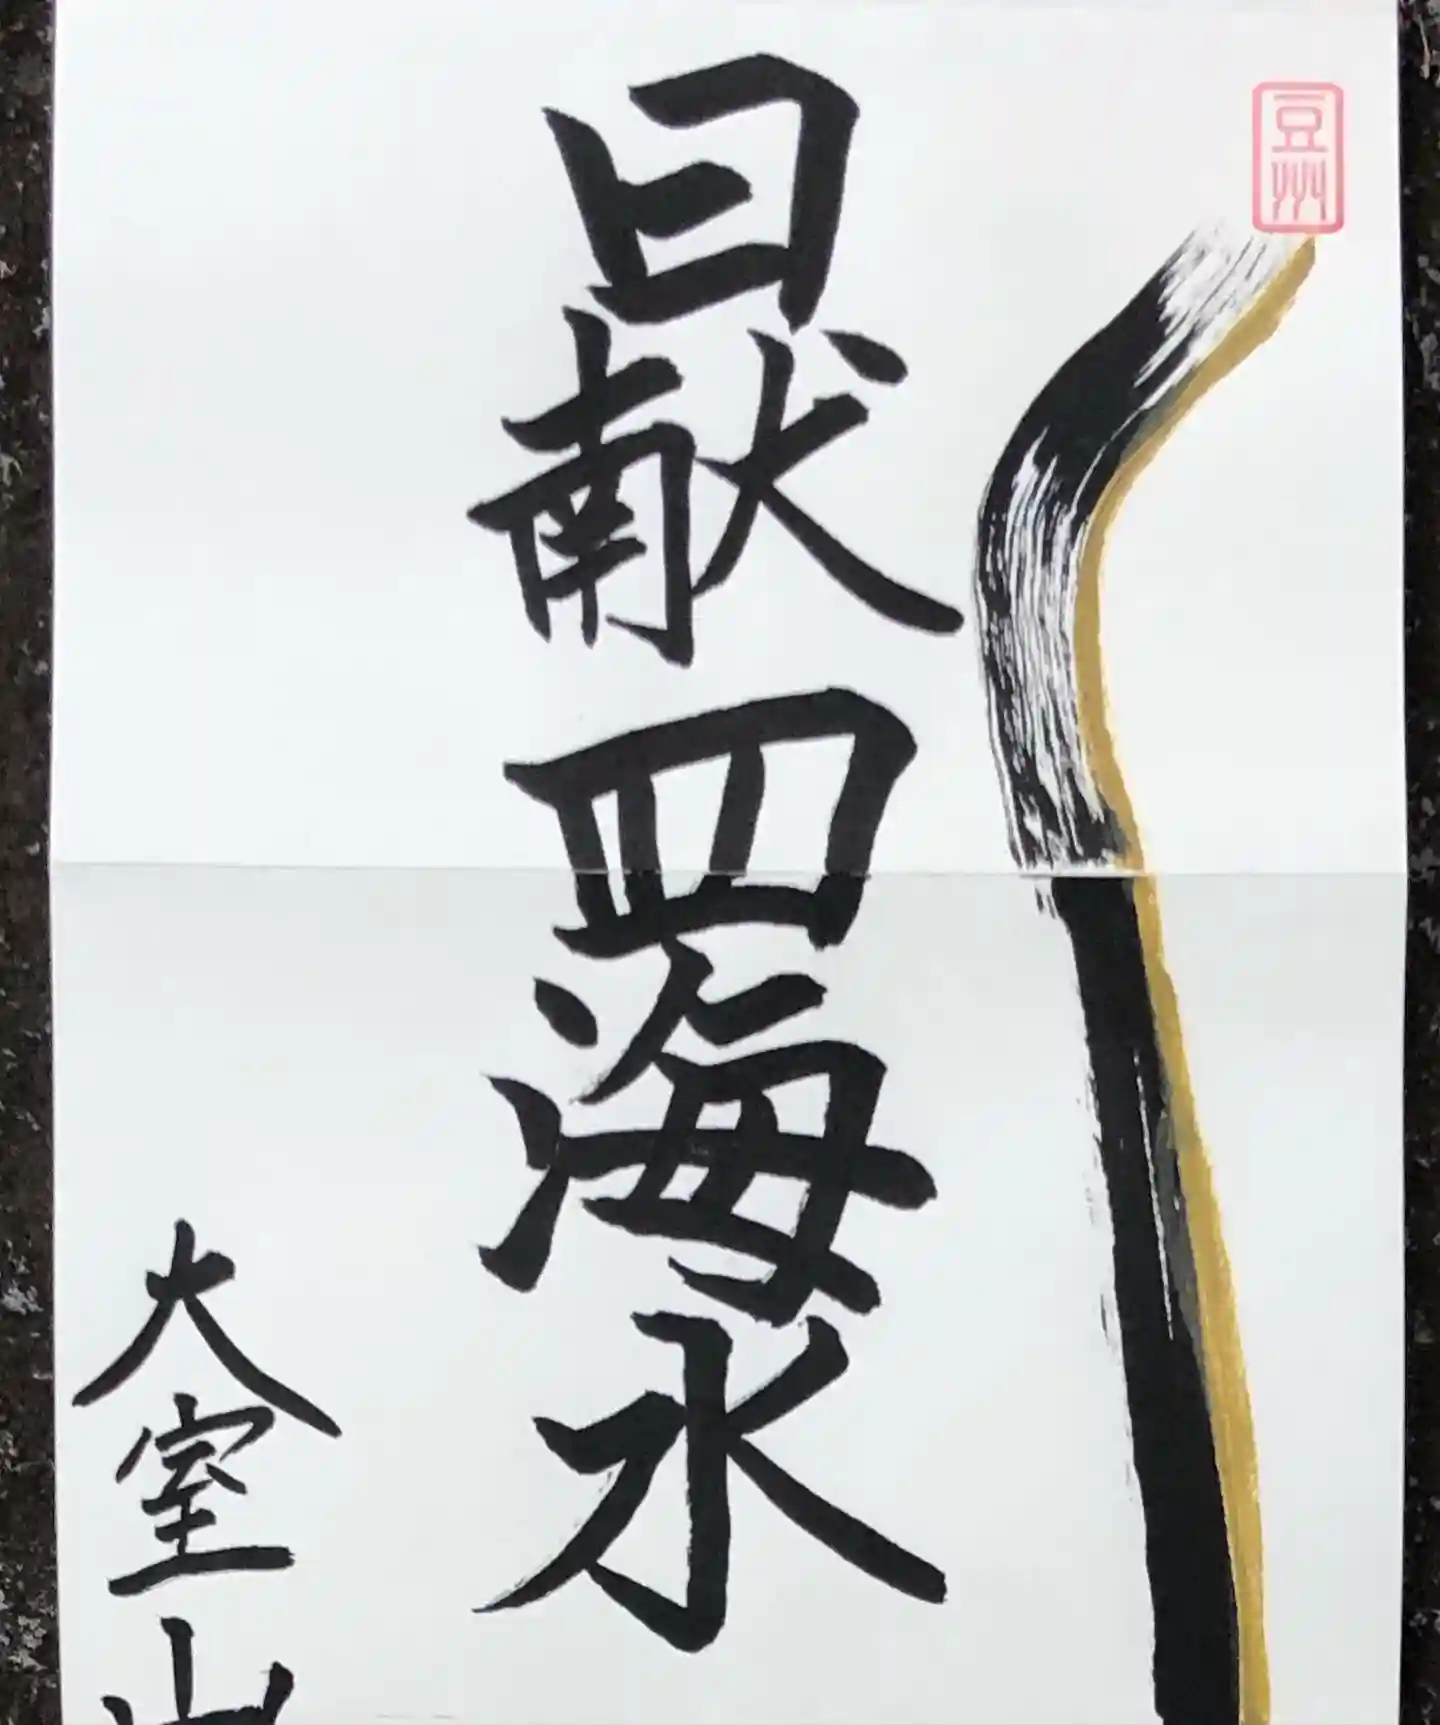 豆州
日献四海水
大室山